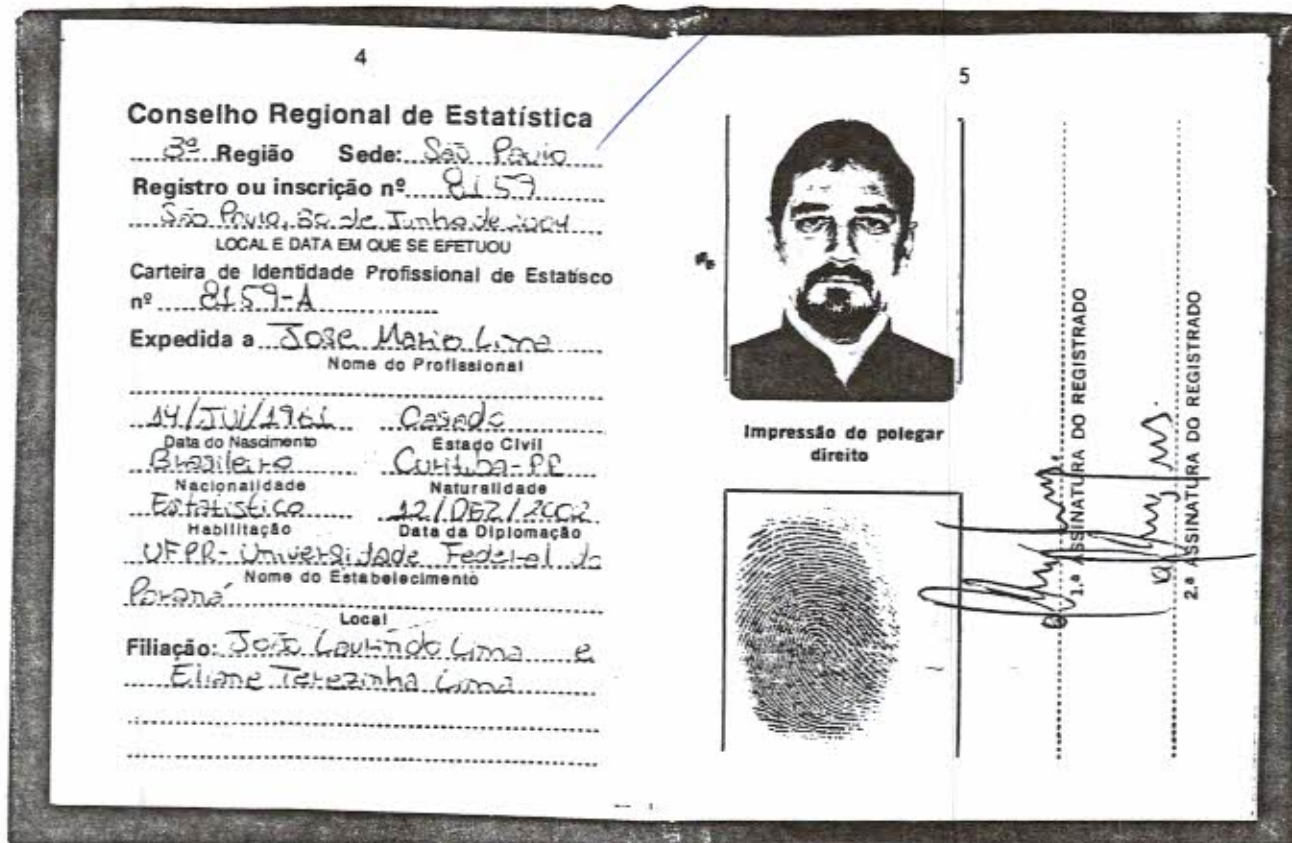 4
Conselho Regional de Estatística
3ª Região Sede: São Paulo
Registro ou inscrição nº 8159
São Paulo, 30 de Junho de 2004
LOCAL E DATA EM QUE SE EFETUOU
Carteira de Identidade Profissional de Estatísco
nº 8159-A
Expedida a José Mario Lima
Nome do Profissional
14/JUL/1961 Casado
Data do Nascimento Estado Civil
Brasileiro Curitiba-PR
Nacionalidade Naturalidade
Estatístico 12/DEZ/2002
Habilitação Data da Diplomação
UFPR-Universidade Federal do
Nome do Estabelecimento
Paraná
Local
Filiação: João Laurindo Lima e
Eliane Terezinha Lima
5
Impressão do polegar
direito
1.ª ASSINATURA DO REGISTRADO
2.ª ASSINATURA DO REGISTRADO